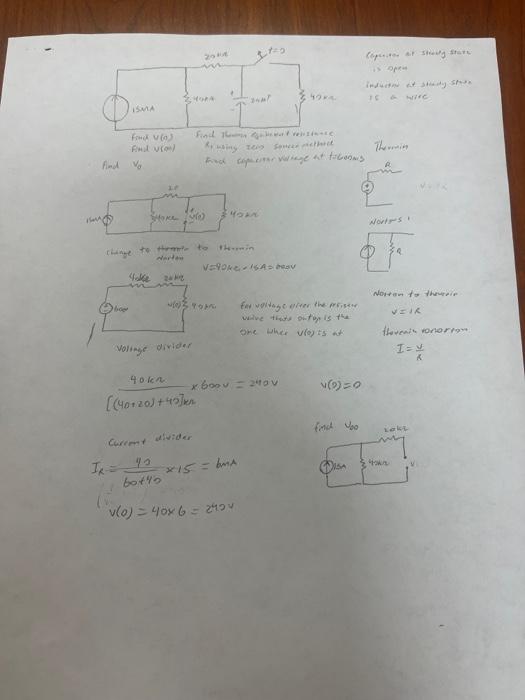 20kΩ t=0
15mA 40kΩ 40kΩ
Capacitor at steady state
is open
inductor at steady state
is a wire
Find v(0) Find Thevenin equivalent resistance
Find v(∞) By using zero source method
Find V₀ Find capacitor voltage at t=600ms
Thevenin
R
20
15mA 40kΩ v(0) 40kΩ
Norton's
R
Change to to thevenin
Norton
V=40kΩ × 15A = 600V
40kΩ 20kΩ
600 v(0) 40kΩ
for voltage divider the resistor
value thats on top is the
one where v(0) is at
Norton to thevenin
V = IR
thevenin to norton
I = V/R
voltage divider
40kΩ / [(40+20)+40]kΩ × 600V = 240V
v(0)=0
Current divider
find V∞
20kΩ
15A 40kΩ V
I_R = 40 / 60+40 × 15 = 6mA
v(0) = 40×6 = 240V